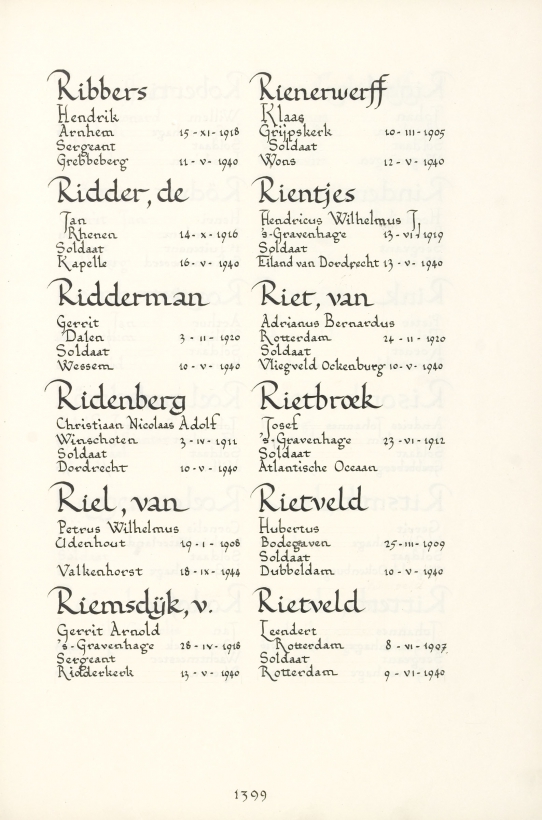 Ribbers
Hendrik
Arnhem 15 - XI - 1918
Sergeant
Grebbeberg 11 - V - 1940
Ridder, de
Jan
Rhenen 14 - X - 1916
Soldaat
Kapelle 16 - V - 1940
Ridderman
Gerrit
Dalen 3 - II - 1920
Soldaat
Wessem 10 - V - 1940
Ridenberg
Christiaan Nicolaas Adolf
Winschoten 3 - IV - 1911
Soldaat
Dordrecht 10 - V - 1940
Riel, van
Petrus Wilhelmus
Udenhout 19 - I - 1908
Valkenhorst 18 - IX - 1944
Riemsdijk, v.
Gerrit Arnold
's-Gravenhage 28 - IV - 1918
Sergeant
Ridderkerk 13 - V - 1940
Rienerwerff
Klaas
Grijpskerk 10 - III - 1905
Soldaat
Wons 12 - V - 1940
Rientjes
Hendricus Wilhelmus J.
's-Gravenhage 13 - VI - 1919
Soldaat
Eiland van Dordrecht 13 - V - 1940
Riet, van
Adrianus Bernardus
Rotterdam 24 - II - 1920
Soldaat
Vliegveld Ockenburg 10 - V - 1940
Rietbroek
Josef
's-Gravenhage 23 - VI - 1912
Soldaat
Atlantische Oceaan
Rietveld
Hubertus
Bodegaven 25 - III - 1909
Soldaat
Dubbeldam 10 - V - 1940
Rietveld
Leendert
Rotterdam 8 - VI - 1907
Soldaat
Rotterdam 9 - VI - 1940
1399